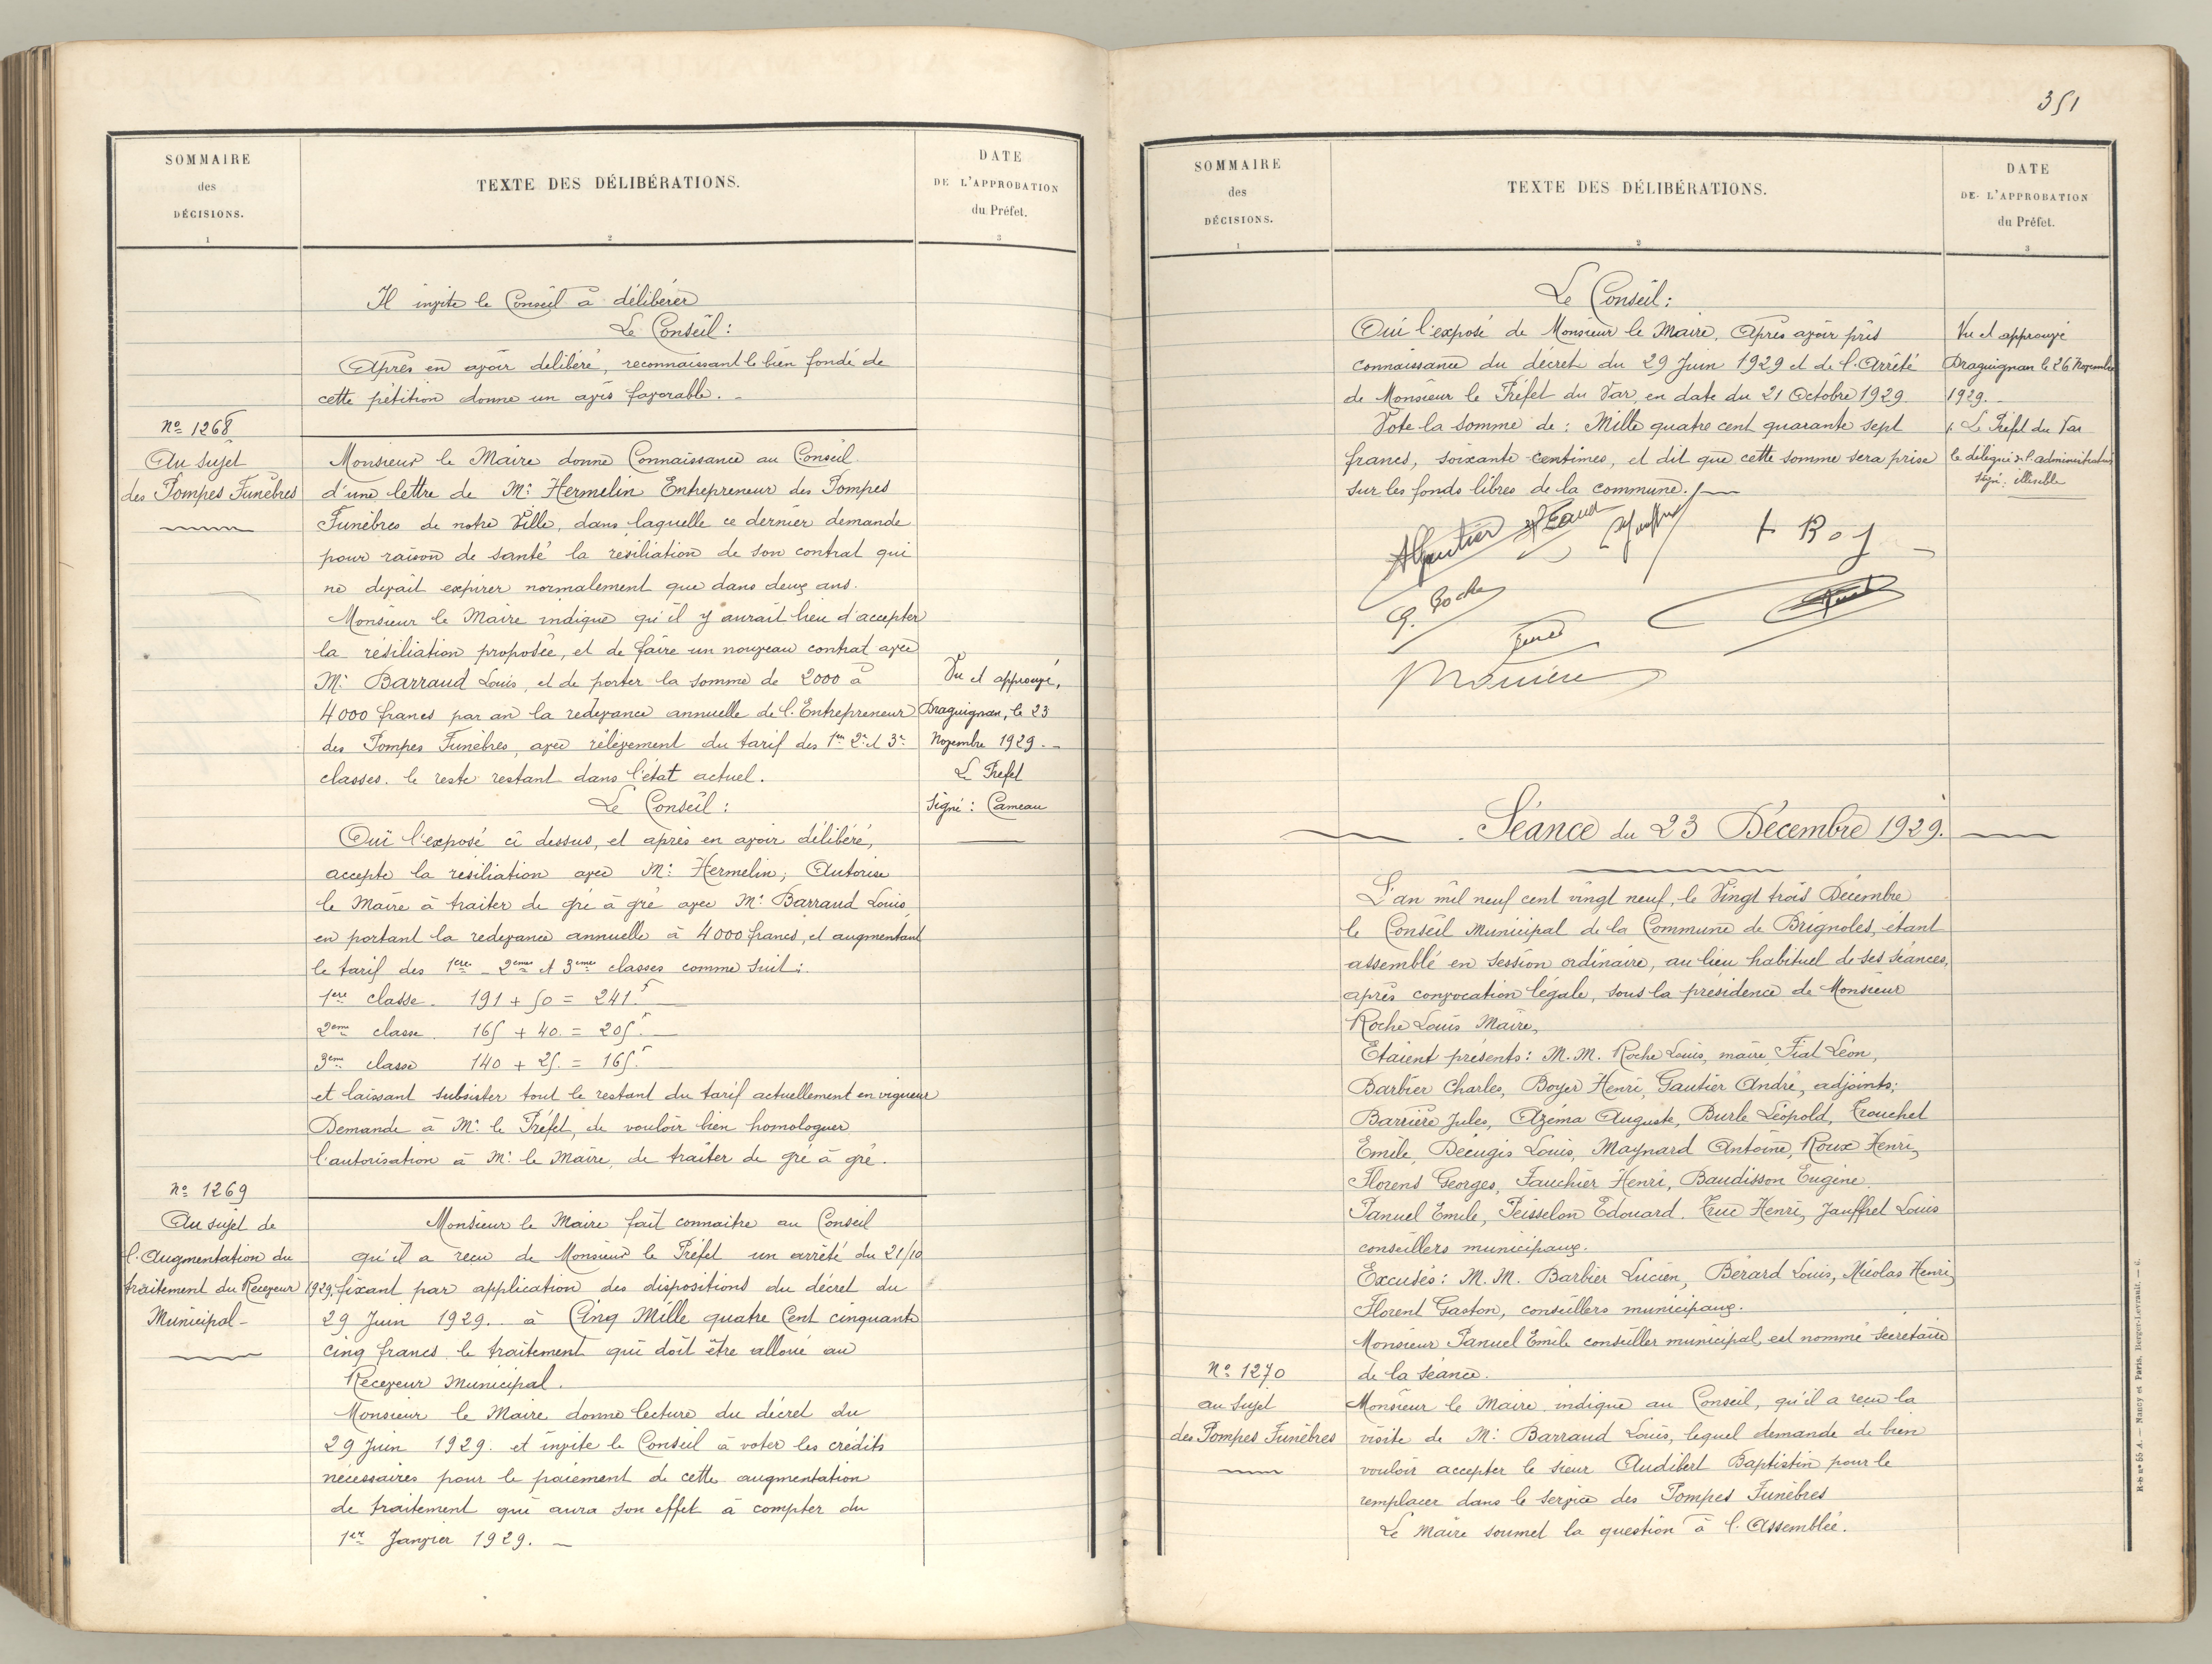 SOMMAIRE
des
DÉCISIONS.
1
TEXTE DES DÉLIBÉRATIONS.
2
DATE
DE L'APPROBATION
du Préfet.
3
Il invite le Conseil à délibérer
Le Conseil :
Après en avoir délibéré, reconnaissant le bien fondé de
cette pétition donne un avis favorable. -
No 1268
Au sujet
des Pompes Funèbres
Monsieur le Maire donne Connaissance au Conseil
d'une lettre de Mr Hermelin Entrepreneur des Pompes
Funèbres de notre Ville, dans laquelle ce dernier demande
pour raison de santé la résiliation de son contrat qui
ne devait expirer normalement que dans deux ans.
Monsieur le Maire indique qu'il y aurait lieu d'accepter
la résiliation proposée, et de faire un nouveau contrat avec
Mr Barraud Louis, et de porter la somme de 2000 à
4000 francs par an la redevance annuelle de l'Entrepreneur
des Pompes Funèbres, avec relèvement du tarif des 1res 2e et 3e
classes. le reste restant dans l'état actuel.
Vu et approuvé,
Draguignan, le 23
Novembre 1929. -
Le Préfet
Signé : Cameau
Le Conseil :
Ouï l'exposé ci dessus, et après en avoir délibéré,
accepte la résiliation avec Mr Hermelin ; Autorise
le Maire à traiter de gré à gré avec Mr Barraud Louis
en portant la redevance annuelle à 4000 francs, et augmentant
le tarif des 1ères - 2èmes et 3èmes classes comme suit :
1ère classe. 191 + 50 = 241.f
2ème classe. 165 + 40. = 205.f
3ème classe 140 + 25. = 165.f
et laissant subsister tout le restant du tarif actuellement en vigueur
Demande à Mr le Préfet, de vouloir bien homologuer
l'autorisation à Mr le Maire, de traiter de gré à gré.
No 1269
Au sujet de
l'Augmentation du
traitement du Receveur
Municipal -
Monsieur le Maire fait connaitre au Conseil
qu'il a reçu de Monsieur le Préfet un arrêté du 21/10
1929, fixant par application des dispositions du décret du
29 Juin 1929. à Cinq Mille quatre Cent cinquante
cinq francs le traitement qui doit être alloué au
Receveur Municipal.
Monsieur le Maire donne lecture du décret du
29 Juin 1929. et invite le Conseil à voter les crédits
nécessaires pour le paiement de cette augmentation
de traitement qui aura son effet à compter du
1er Janvier 1929. -
351
SOMMAIRE
des
DÉCISIONS.
1
TEXTE DES DÉLIBÉRATIONS.
2
DATE
DE L'APPROBATION
du Préfet.
3
Le Conseil :
Ouï l'exposé de Monsieur le Maire, Après avoir pris
connaissance du décret du 29 Juin 1929 et de l'Arrêté
de Monsieur le Préfet du Var, en date du 21 Octobre 1929.
Vote la somme de : Mille quatre cent quarante sept
francs, soixante centimes, et dit que cette somme sera prise
sur les fonds libres de la commune. /-
Vu et approuvé
Draguignan le 26 Novembre
1929. -
p. Le Préfet du Var
le délégué à l'administration
signé : illisible
AGautier
G. Roche
Séance du 23 Décembre 1929.
L'an mil neuf cent vingt neuf, le Vingt trois Décembre
le Conseil Municipal de la Commune de Brignoles, étant
assemblé en session ordinaire, au lieu habituel de ses séances,
après convocation légale, sous la présidence de Monsieur
Roche Louis Maire,
Etaient présents : M.M. Roche Louis, maire, Fiat Léon,
Barbier Charles, Boyer Henri, Gautier André, adjoints ;
Barrière Jules, Azéma Auguste, Burle Léopold, Trouchet
Emile, Décugis Louis, Maynard Antoine, Roux Henri,
Florens Georges, Fauchier Henri, Baudisson Eugène,
Panuel Emile, Peisselon Edouard. Truc Henri, Jauffret Louis
conseillers municipaux.
Excusés : M.M. Barbier Lucien, Bérard Louis, Nicolas Henri,
Florent Gaston, conseillers municipaux.
Monsieur Panuel Emile conseiller municipal, est nommé secrétaire
de la séance.
No 1270
au sujet
des Pompes Funèbres
Monsieur le Maire indique au Conseil, qu'il a reçu la
visite de Mr Barraud Louis, lequel demande de bien
vouloir accepter le sieur Audibert Baptistin pour le
remplacer dans le service des Pompes Funèbres
Le Maire soumet la question à l'Assemblée.
R-S n° 55 A. — Nancy et Paris, Berger-Levrault. — 6.